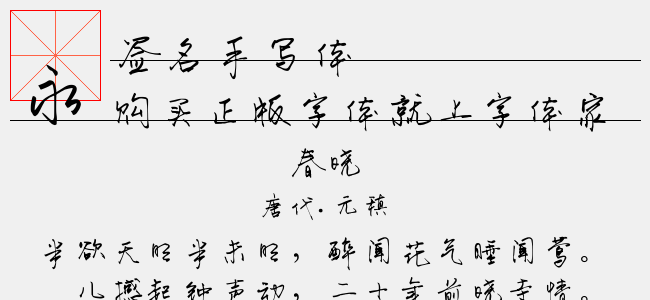 签名手写体
永
购买正版字体就上字体家
春晓
唐代.元稹
半欲天明半未明，醉闻花气睡闻莺。
儿撼起钟声动，二十年前晓寺情。